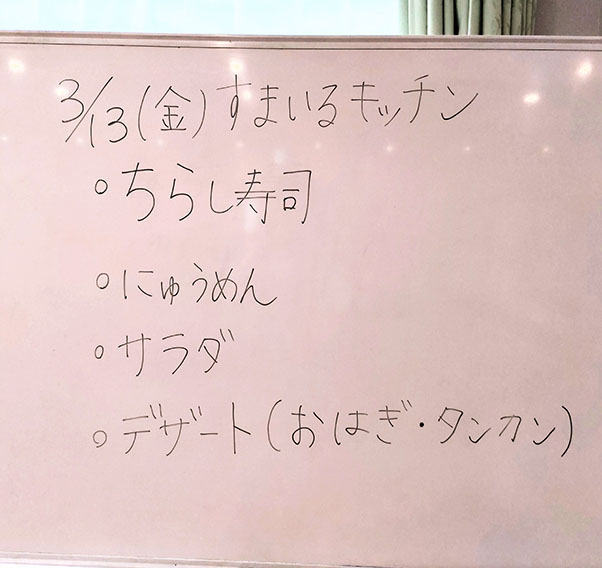 3/13(金)すまいるキッチン
○ちらし寿司
○にゅうめん
○サラダ
○デザート(おはぎ・タンカン)